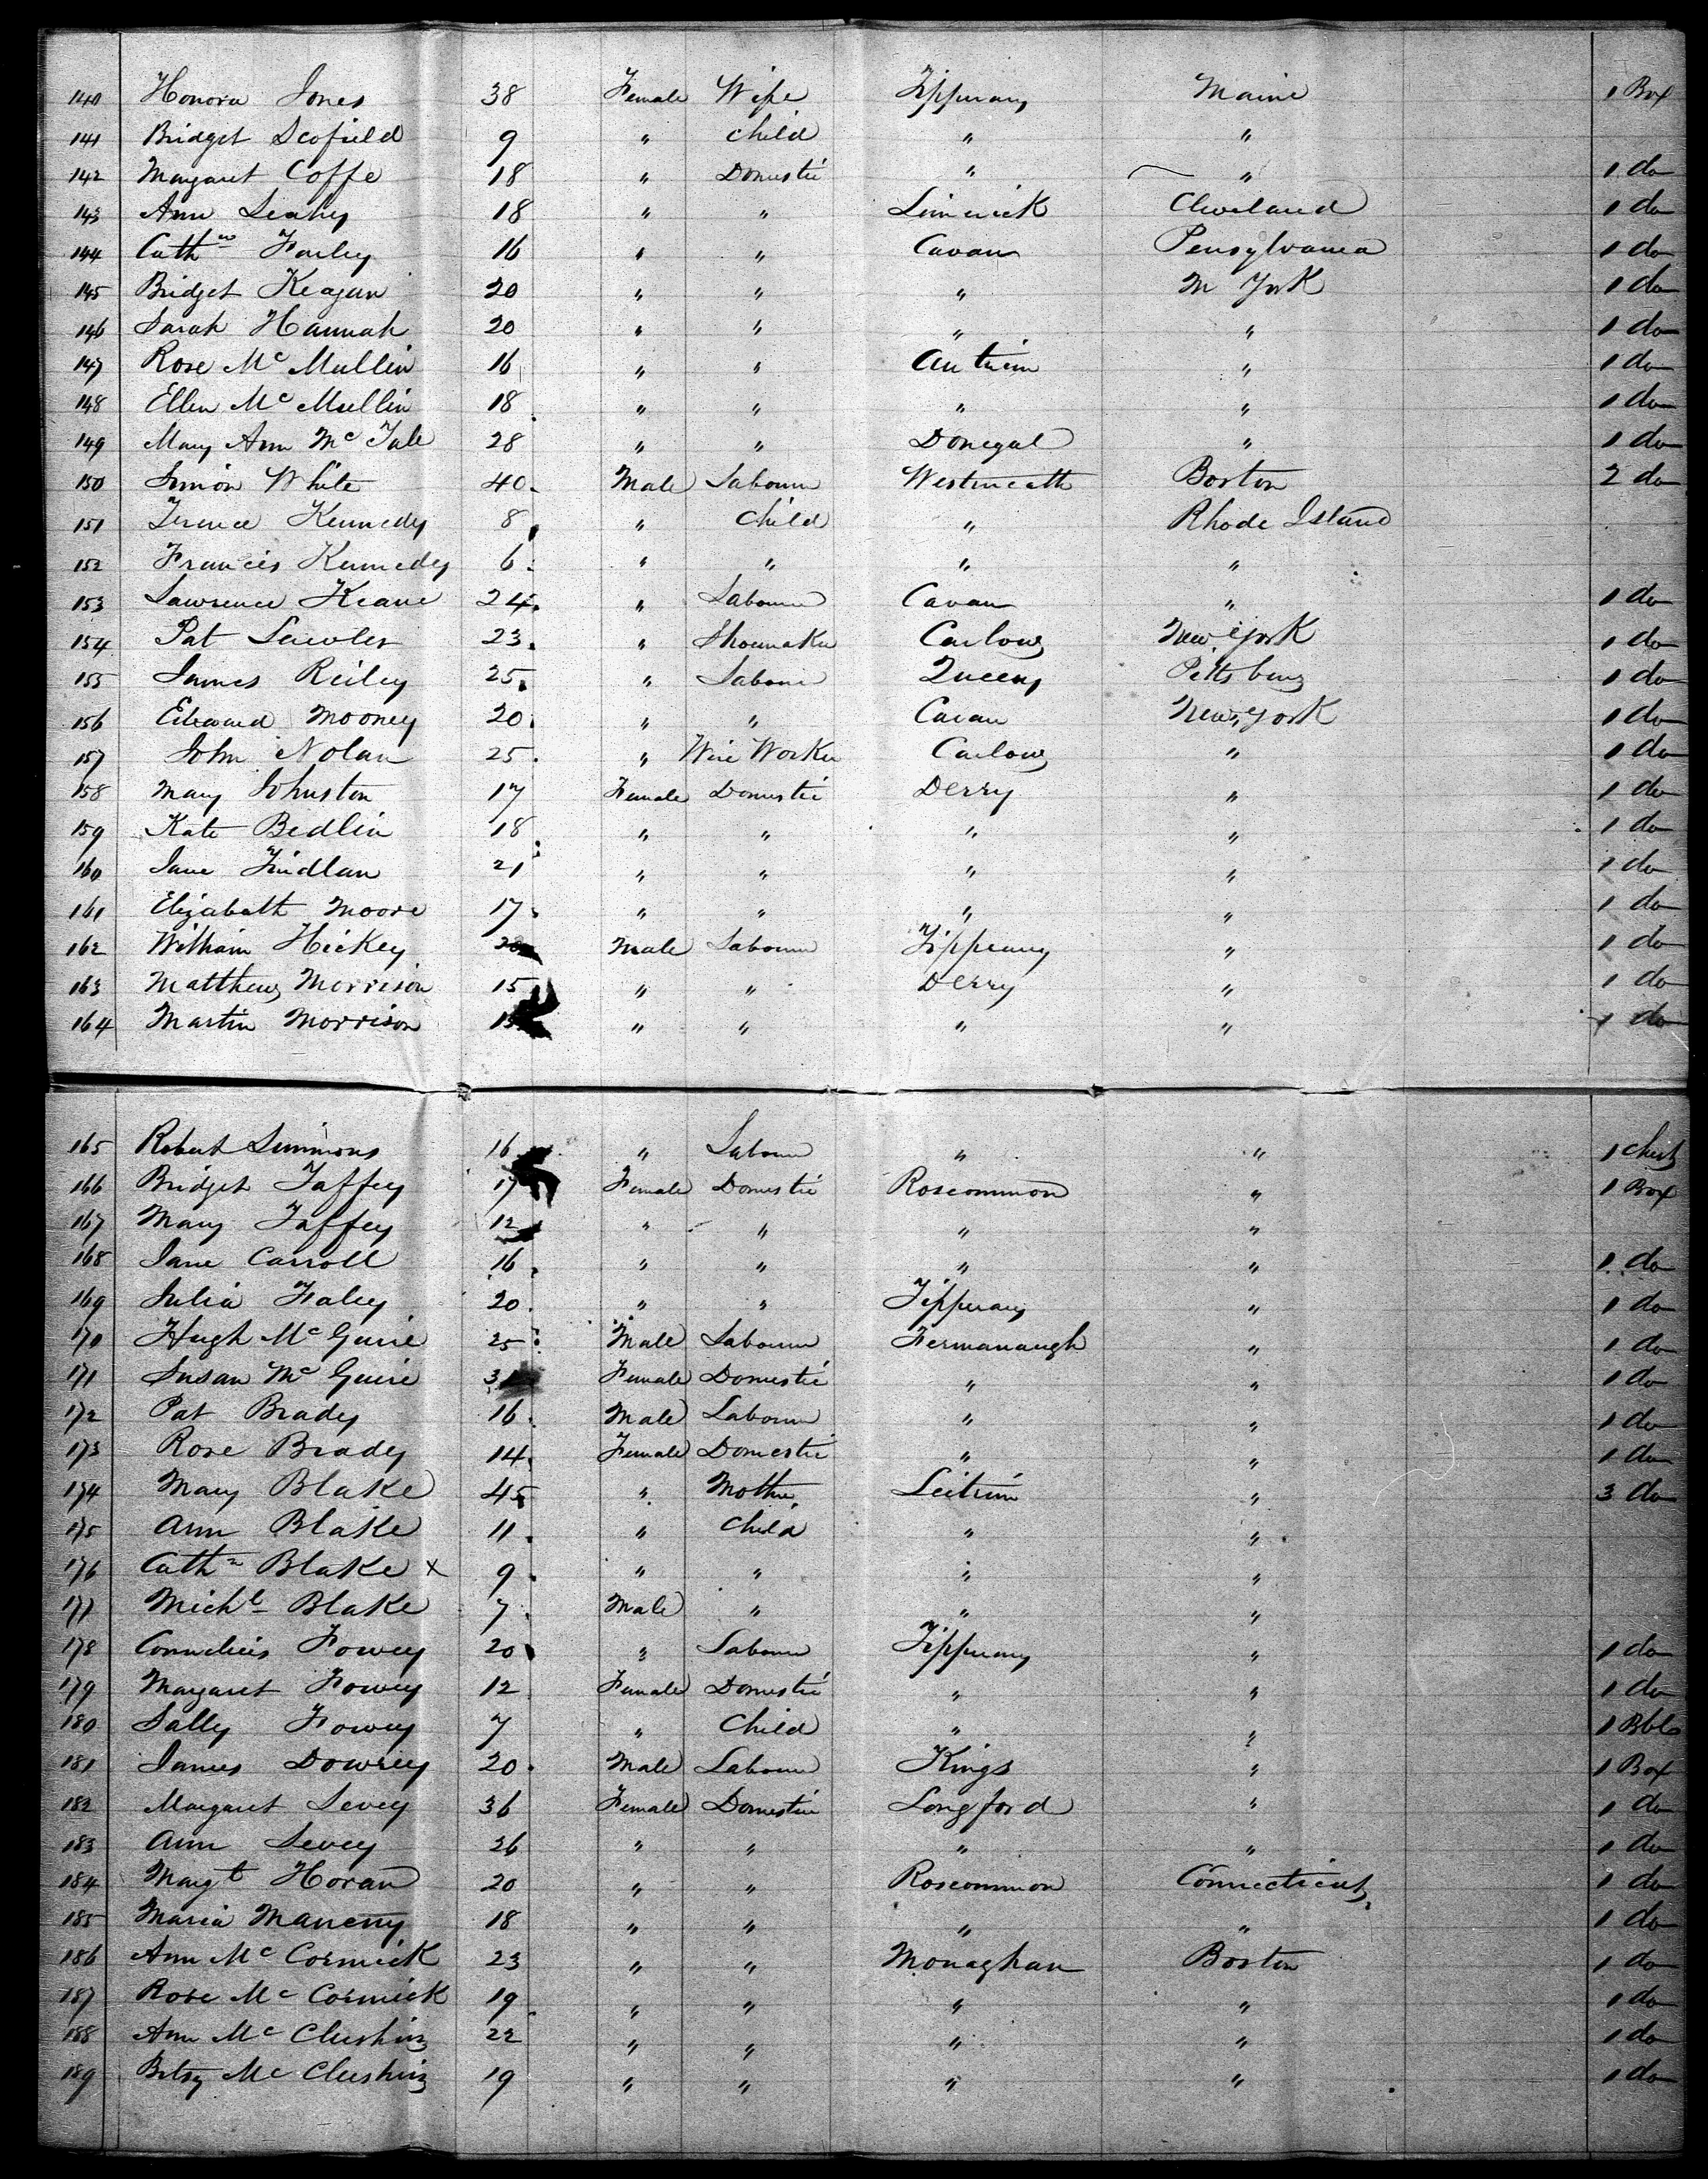 140 Honora Jones 38 Female Wife Tipperary Maine 1 Box
141 Bridget Scofield 9 " Child " "
142 Margaret Coffe 18 " Domestic " " 1 do
143 Ann Leahy 18 " " Limerick Cleveland 1 do
144 Cathn Farley 16 " " Cavan Pensylvania 1 do
145 Bridget Keagan 20 " " " N York 1 do
146 Sarah Hannah 20 " " " " 1 do
147 Rose McMullin 16 " " Antrim " 1 do
148 Ellen McMullin 18 " " " " 1 do
149 Mary Ann Mc 28 " " Donegal " 1 do
150 Simon White 40 Male Labourer Westmeath Boston 2 do
151 Terence Kennedy 8 " Child " Rhode Island
152 Francis Kennedy 6 " " " "
153 Lawrence Keane 24 " Labourer Cavan " 1 do
154 Pat 23 " Shoemaker Carlow New York 1 do
155 James Reiley 25 " Labourer Queens Pittsburg 1 do
156 Edward Mooney 20 " " Cavan New York 1 do
157 John Nolan 25 " Wire Worker Carlow " 1 do
158 Mary Johnston 17 Female Domestic Derry " 1 do
159 Kate Bedlin 18 " " " " 1 do
160 Jane Findlan 21 " " " " 1 do
161 Elizabath Moore 17 " " " " 1 do
162 William Hickey Male Labourer Tipperary " 1 do
163 Matthew Morrison 15 " " Derry " 1 do
164 Martin Morrison " " " " 1 do
165 Robert Simmons 16 " Labourer " " 1 Chest
166 Bridget Taffey 17 Female Domestic Roscommon " 1 Box
167 Mary Taffey 12 " " " "
168 Jane Carroll 16 " " " " 1 do
169 Julia Faley 20 " " Tipperary " 1 do
170 Hugh McGuire 25 Male Labourer Fermanaugh " 1 do
171 Susan McGuire Female Domestic " " 1 do
172 Pat Brady 16 Male Labourer " " 1 do
173 Rose Brady 14 Female Domestic " " 1 do
174 Mary Blake 45 " Mother Leitrim " 3 do
175 Ann Blake 11 " Child " "
176 Cathn Blake x 9 " " " "
177 Michl Blake 7 Male " " "
178 Cornelius Fowey 20 " Labourer Tipperary " 1 do
179 Margaret Fowey 12 Female Domestic " " 1 do
180 Sally Fowey 7 " Child " " 1 Bbl
181 James Dowrey 20 Male Labourer Kings " 1 Box
182 Margaret Levey 36 Female Domestic Longford " 1 do
183 Ann Levey 26 " " " " 1 do
184 Margt Horan 20 " " Roscommon Connecticut 1 do
185 Maria Maneny 18 " " " " 1 do
186 Ann McCormick 23 " " Monaghan Boston 1 do
187 Rose McCormick 19 " " " " 1 do
188 Ann Mc 22 " " " " 1 do
189 Betsy Mc 19 " " " " 1 do